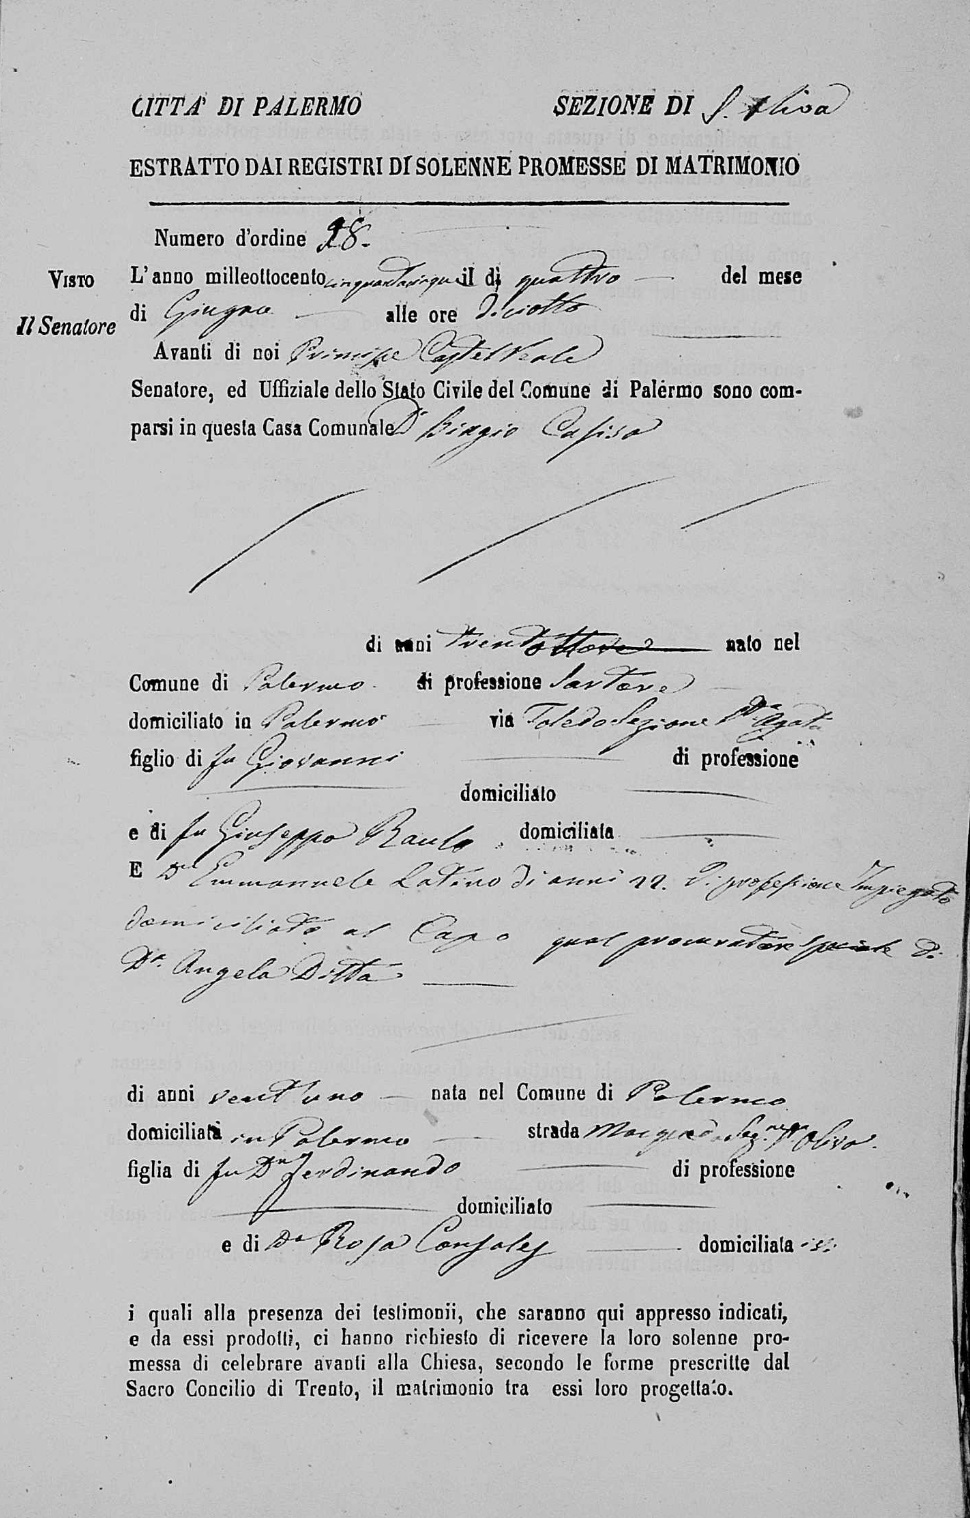 CITTA' DI PALERMO SEZIONE DI S. Oliva
ESTRATTO DAI REGISTRI DI SOLENNE PROMESSE DI MATRIMONIO
Numero d'ordine 98.
VISTO
Il Senatore
L'anno milleottocento cinquantacinque il dì quattro del mese
di Giugno alle ore diciotto
Avanti di noi Principe Castel Reale
Senatore, ed Uffiziale dello Stato Civile del Comune di Palermo sono com-
parsi in questa Casa Comunale Dn Biagio Cafiso
di anni trent nato nel
Comune di Palermo di professione Sartore
domiciliato in Palermo via Toledo Sezione Agata
figlio di fu Giovanni di professione
domiciliato
e di fu Giuseppa domiciliata
E Dn Emmanuele Latino di anni 22. di professione Impiegato
domiciliato al Capo qual procuratore speciale di
Da. Angela Ditta
di anni vent'uno nata nel Comune di Palermo
domiciliata in Palermo strada Sez.ne Oliva.
figlia di fu Dn Ferdinando di professione
domiciliato
e di Da Rosa Consales domiciliata ivi
i quali alla presenza dei testimonii, che saranno qui appresso indicati,
e da essi prodotti, ci hanno richiesto di ricevere la loro solenne pro-
messa di celebrare avanti alla Chiesa, secondo le forme prescritte dal
Sacro Concilio di Trento, il matrimonio tra essi loro progettato.